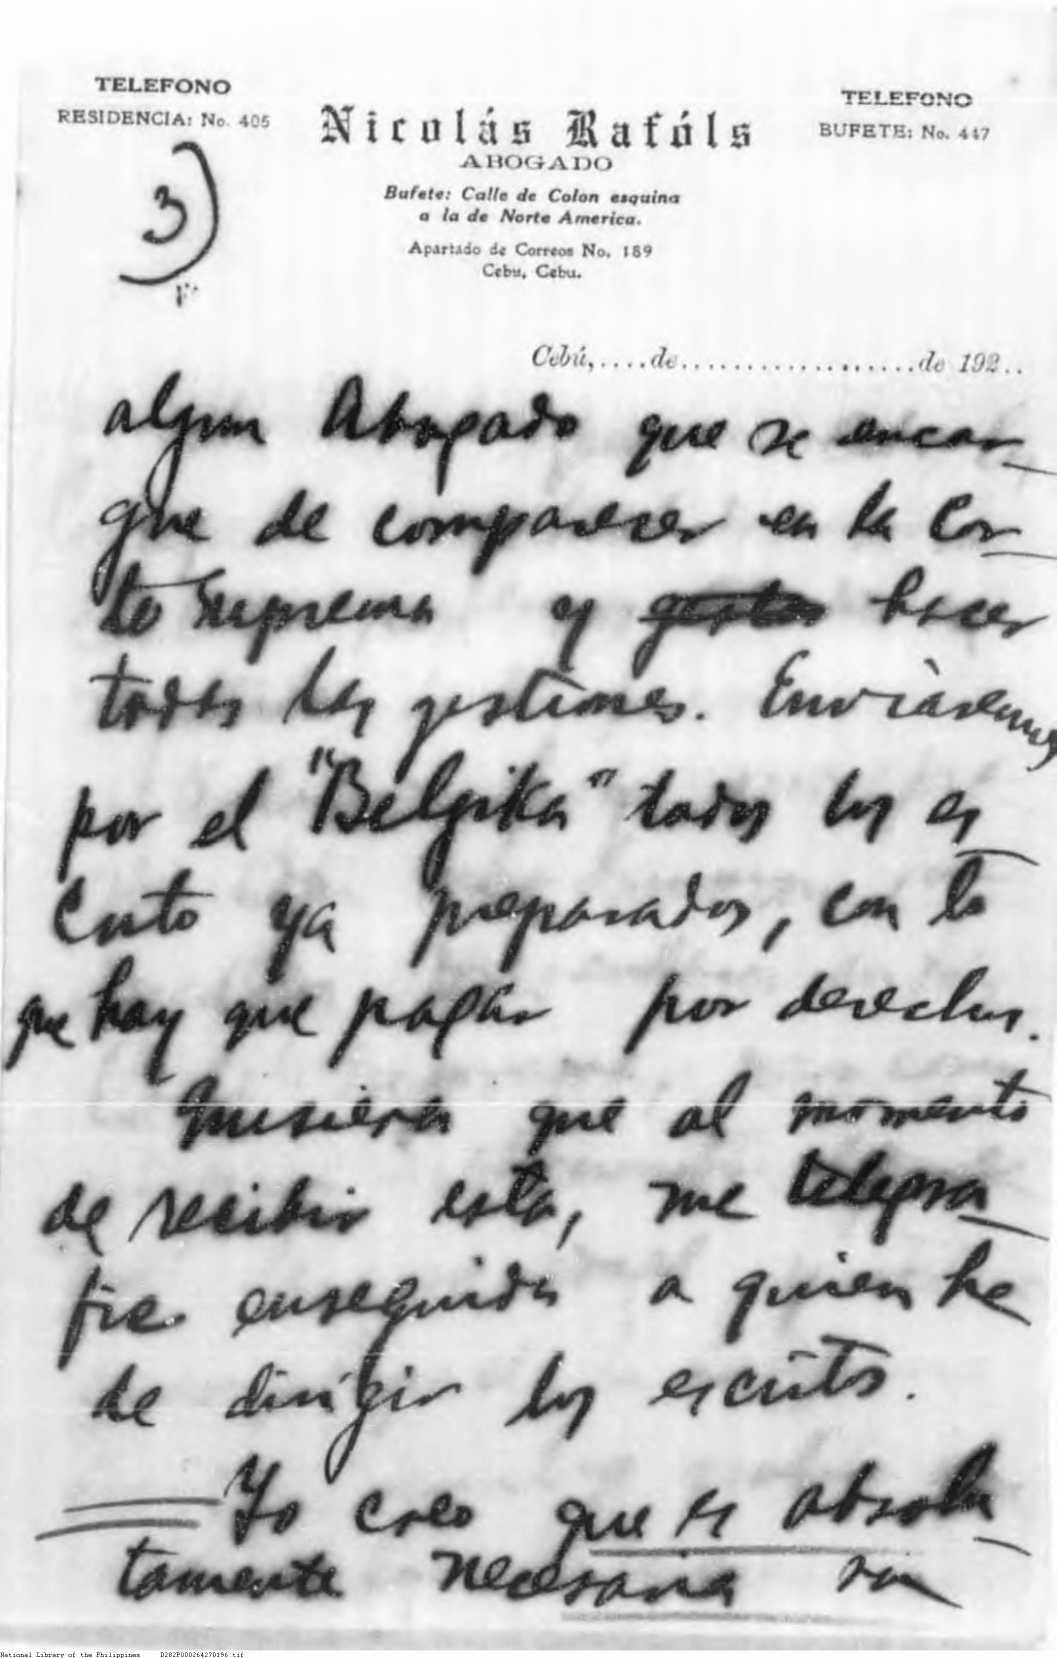 TELEFONO
RESIDENCIA: No. 405
TELEFONO
BUFETE: No. 447
Nicolás Rafóls
ABOGADO
Bufete: Calle de Colon esquina
a la de Norte America.
Apartado de Correos No. 189
Cebu, Cebu.
3)
Cebú,....de..................de 192..
algun Abogado que se encar-
gue de comparecer en la Cor-
te Suprema y hacer
todas las gestiones. Enviaremos
por el "Belgika" todos los es-
critos ya preparados, con lo
que hay que pagar por derechos.
Quisiera que al momento
de recibir esta, me telegra-
fie enseguida a quien he
de dirigir los escritos.
Yo creo que es absolu-
tamente necesaria su
National Library of the Philippines D282P000264270196.tif